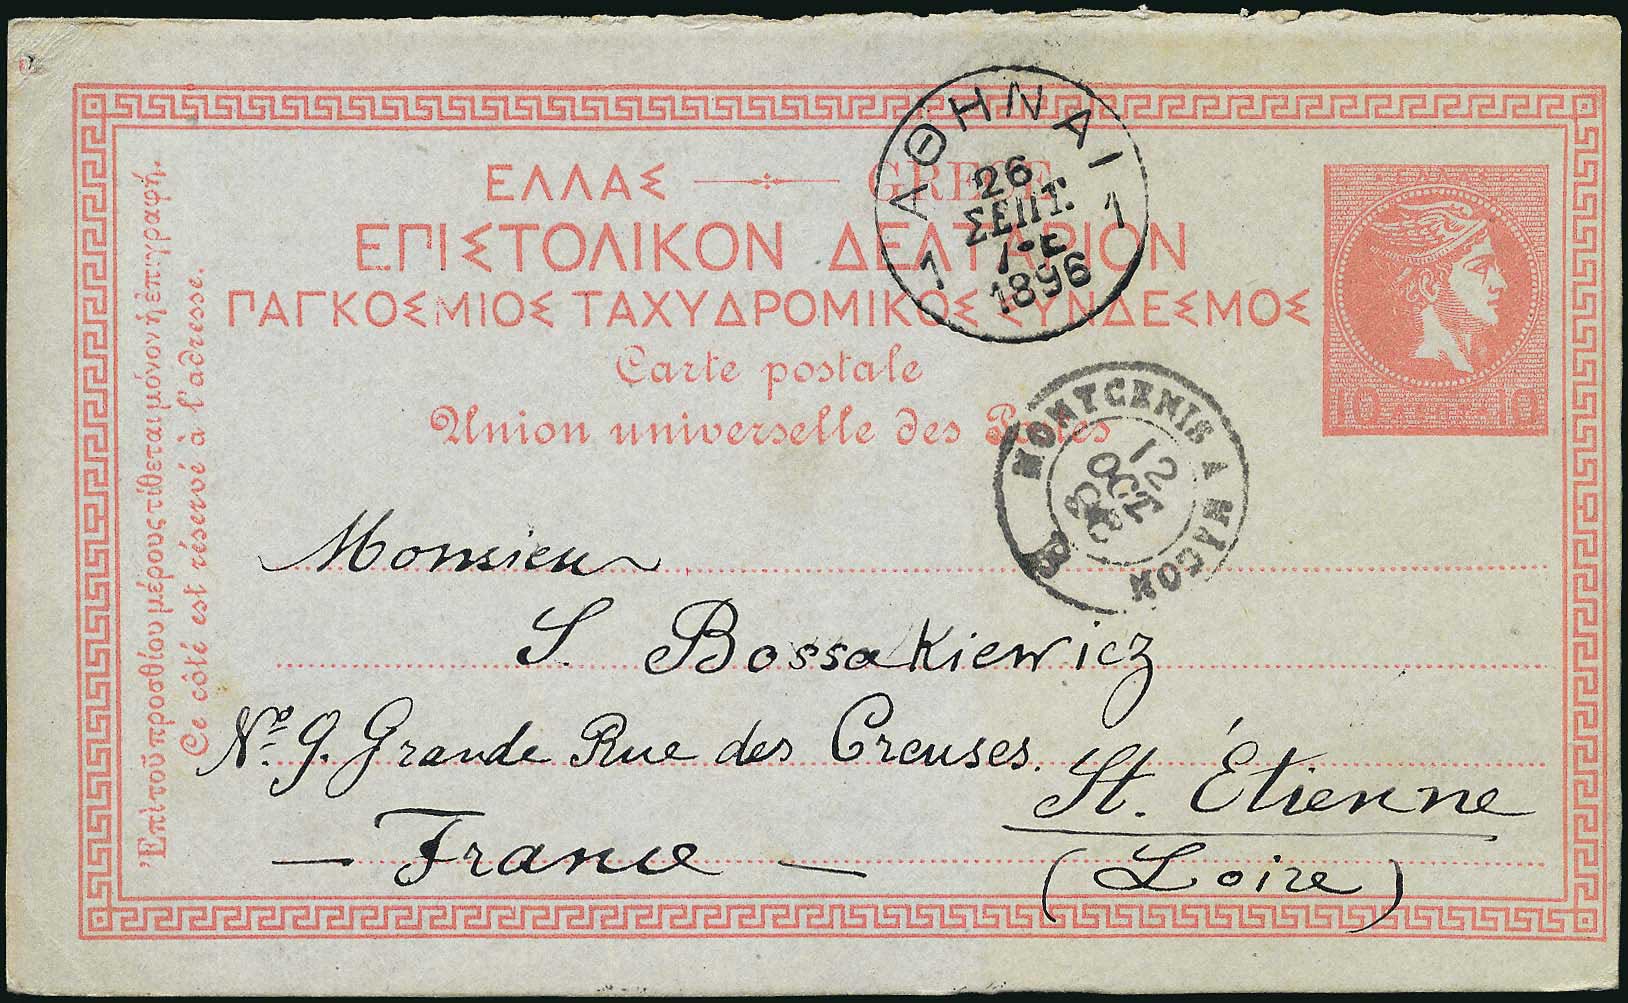 ΕΛΛΑΣ GRÈCE
ΕΠΙΣΤΟΛΙΚΟΝ ΔΕΛΤΑΡΙΟΝ
ΠΑΓΚΟΣΜΙΟΣ ΤΑΧΥΔΡΟΜΙΚΟΣ ΣΥΝΔΕΣΜΟΣ
Carte postale
Union universelle des Postes
Ἐπὶ τοῦ προσθίου μέρους τίθεται μόνον ἡ ἐπιγραφή.
Ce côté est réservé à l'adresse.
ΑΘΗΝΑΙ
26
ΣΕΠΤ.
1896
1 1
ΕΛΛΑΣ
10 ΛΕΠΤΑ 10
MONTCENIS A MACON
12
OCT
Monsieu
S. Bossakiewicz
No. 9. Grande Rue des Creuses.
St. Étienne
— France —
(Loire)